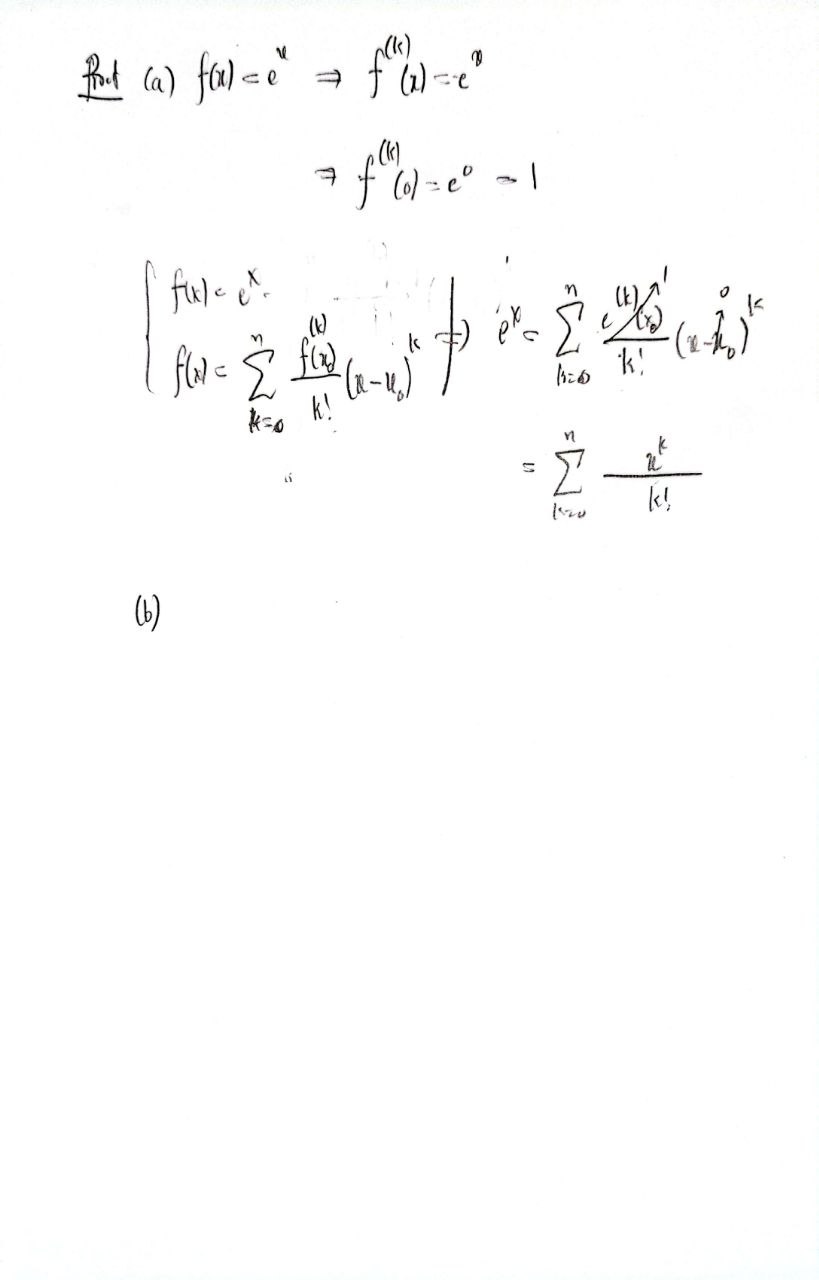 Proof (a) f(x) = e^x ⇒ f^(k)(x) = e^x
⇒ f^(k)(0) = e^0 = 1
f(x) = e^x.
f(x) = n ∑ k=0 f^(k)(x₀) / k! (x-x₀)^k ⇒ e^x = n ∑ k=0 e^(k)(x₀) 1 / k! (x-x₀ 0)^k
= n ∑ k=0 x^k / k!
(b)